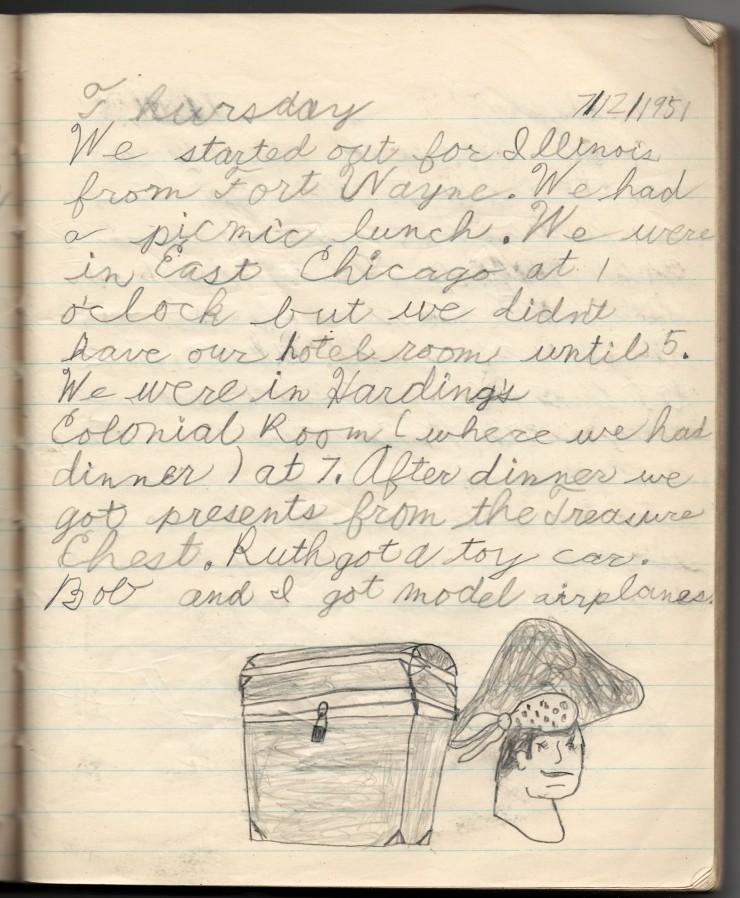 Thursday 7/12/1951
We started out for Illinois
from Fort Wayne. We had
a picnic lunch. We were
in East Chicago at 1
o'clock but we didn't
have our hotel room until 5.
We were in Harding's
Colonial Room (where we had
dinner) at 7. After dinner we
got presents from the Treasure
Chest. Ruth got a toy car.
Bob and I got model airplanes.